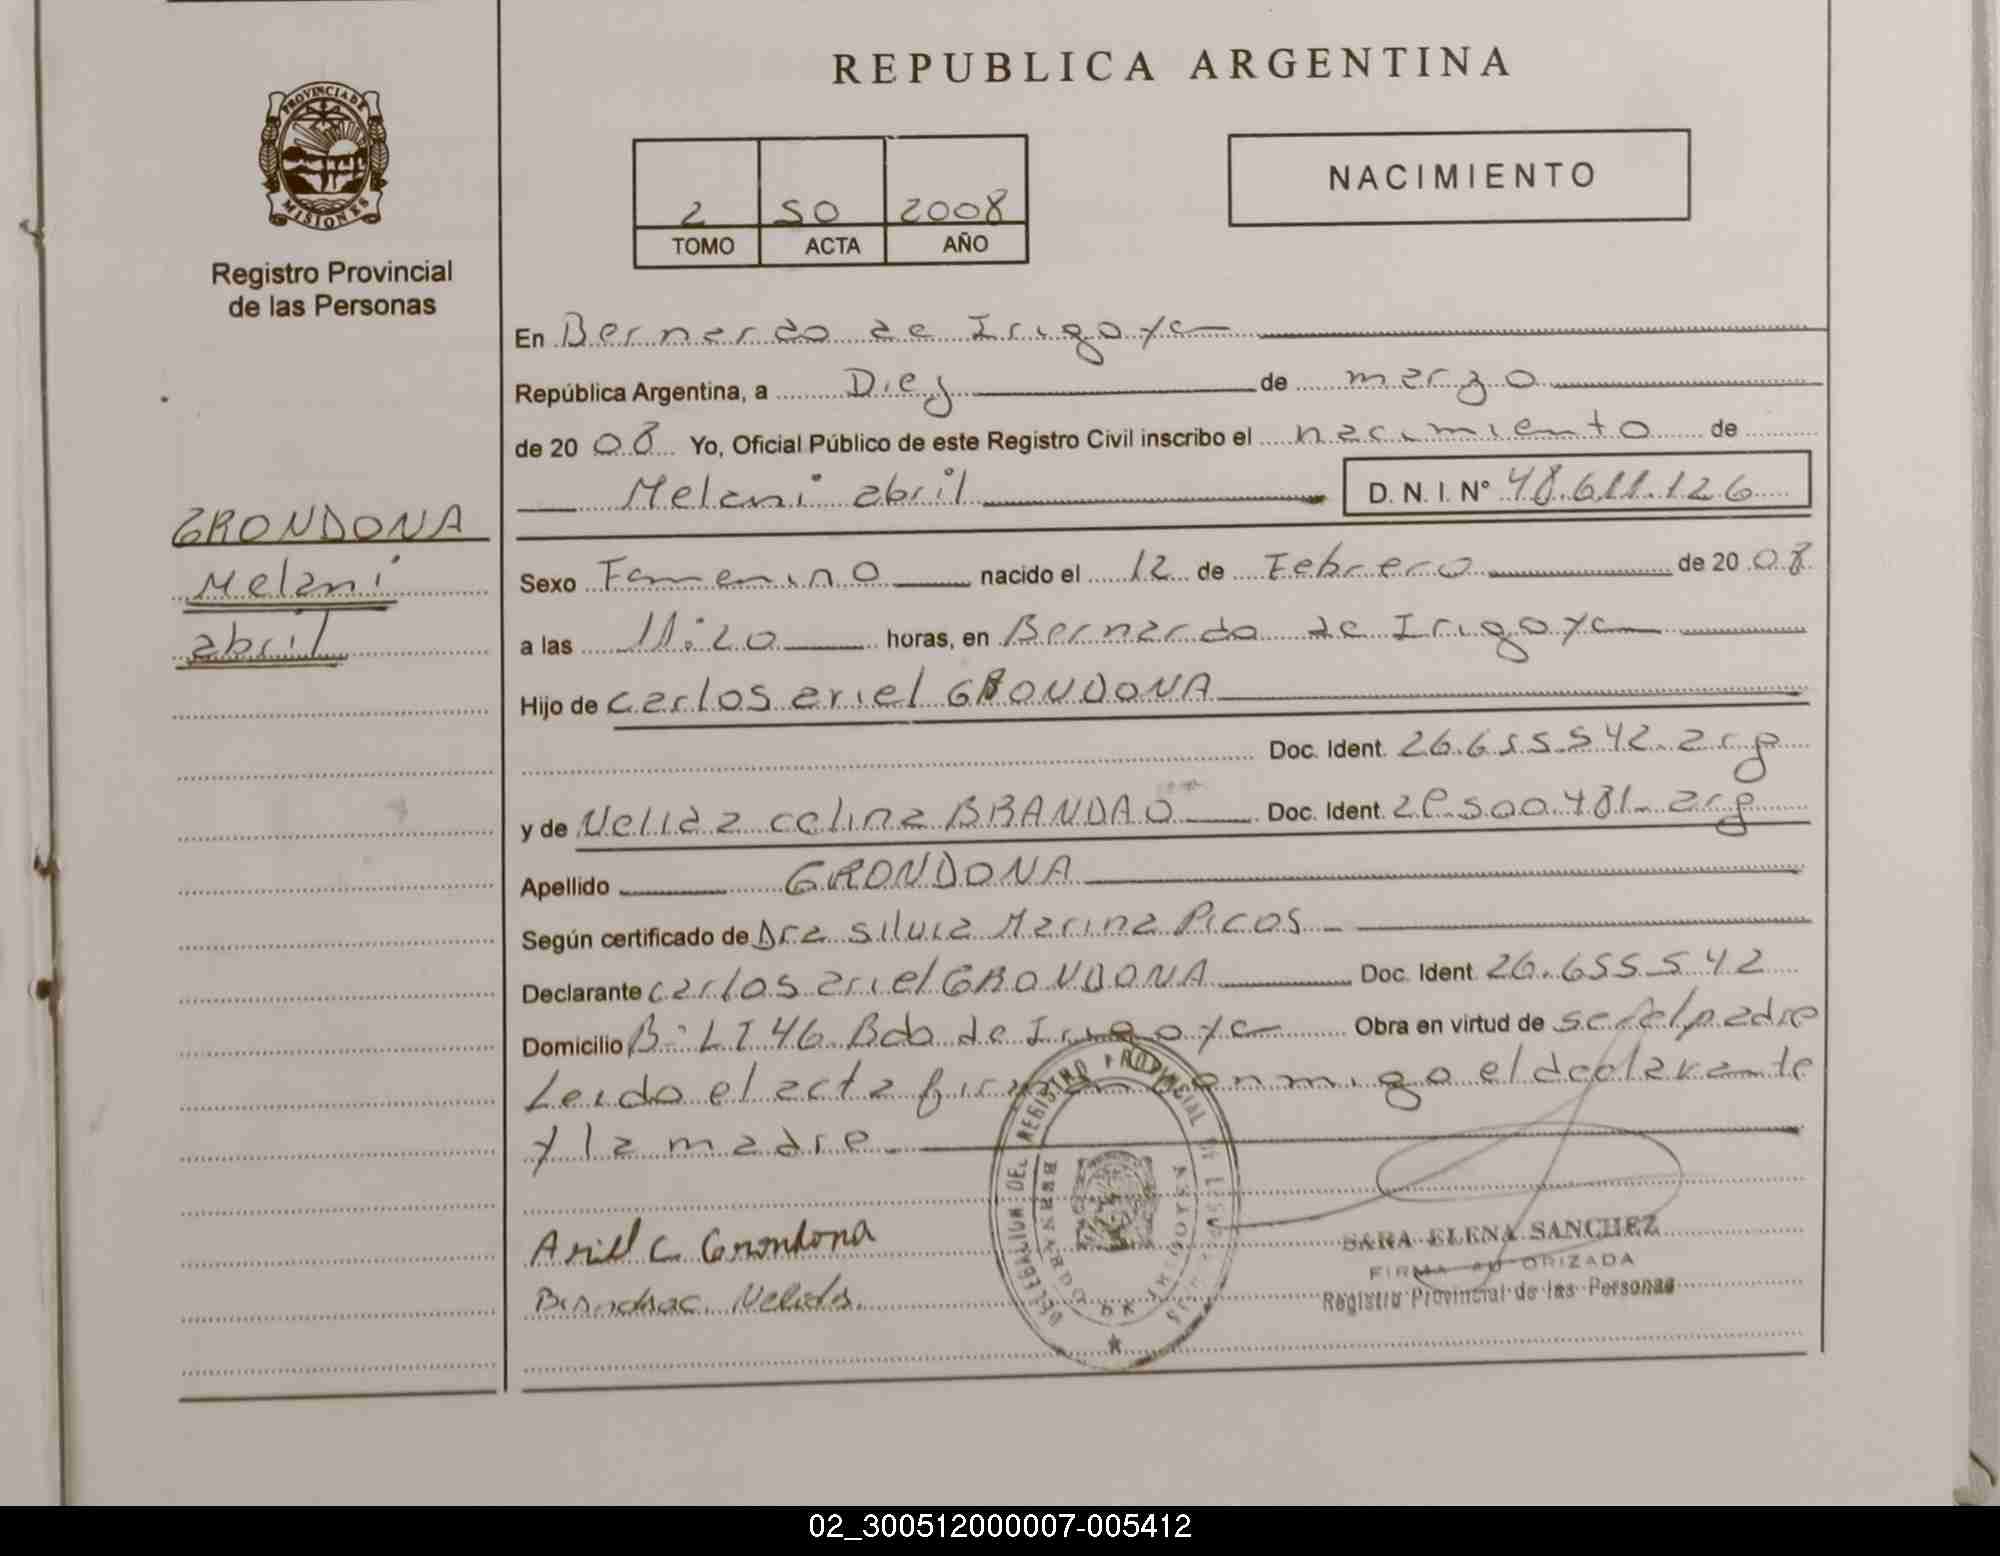 REPUBLICA ARGENTINA
PROVINCIA DE
MISIONES
Registro Provincial
de las Personas
2 50 2008
TOMO ACTA AÑO
NACIMIENTO
En Bernardo de Irigoye
República Argentina, a Diez de marzo
de 20 08 Yo, Oficial Público de este Registro Civil inscribo el nacimiento de
Melani abril D. N. I. Nº 48.611.126
GRONDONA
Melani
abril
Sexo Femenino nacido el 12 de Febrero de 20 08
a las 11:20 horas, en Bernardo de Irigoye
Hijo de carlos ariel GRONDONA
Doc. Ident. 26.655.542 arg
y de Nelida celina BRANDAO Doc. Ident. .500.481 arg
Apellido GRONDONA
Según certificado de Dra silvia Marina Picos
Declarante carlos ariel GRONDONA Doc. Ident. 26.655.542
Domicilio Bdo de Irigoye Obra en virtud de ser el padre
Leido el acta firman conmigo el declarante
y la madre
Ariel C Grondona
Brandao Nelida
DELEGACION DEL REGISTRO PROVINCIAL DE LAS PERSONAS
BERNARDO DE IRIGOYEN
SARA ELENA SANCHEZ
FIRMA AUTORIZADA
Registro Provincial de las Personas
02_300512000007-005412